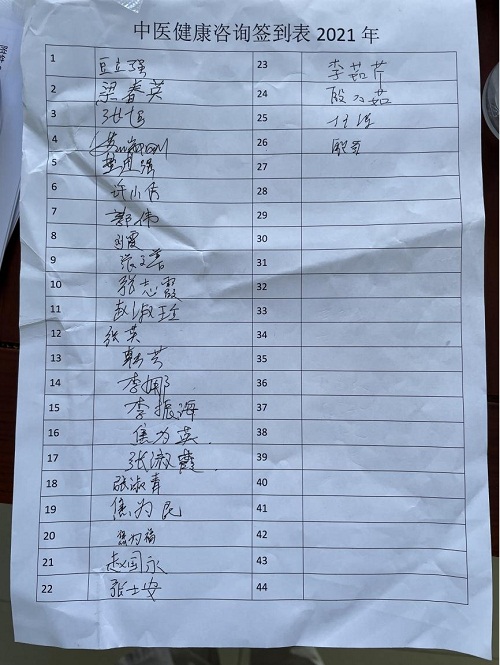 中医健康咨询签到表 2021 年
1 豆立强 23 李茹芹
2 梁春英 24 殷乃茹
3 张旭 25
4 26
5 强 27
6 许小秀 28
7 郭伟 29
8 刘霞 30
9 张玉善 31
10 张志霞 32
11 赵淑珍 33
12 张英 34
13 韩芳 35
14 李娜 36
15 李振海 37
16 焦为英 38
17 张淑霞 39
18 张淑青 40
19 焦为民 41
20 焦为福 42
21 赵国永 43
22 张士安 44